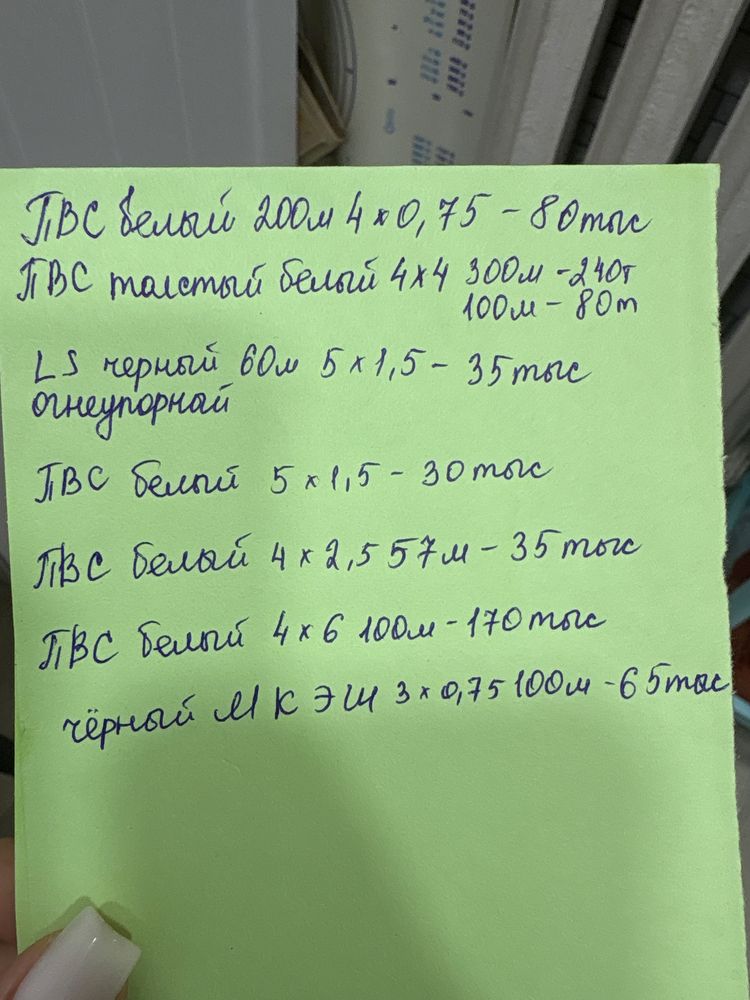 ПВС белый 200м 4×0,75 - 80тыс
ПВС толстый белый 4×4 300м - 240т
100м - 80т
LS черный 60м 5×1,5 - 35тыс
огнеупорнай
ПВС белый 5×1,5 - 30тыс
ПВС белый 4×2,5 57м - 35тыс
ПВС белый 4×6 100м - 170тыс
чёрный МКЭШ 3×0,75 100м - 65тыс